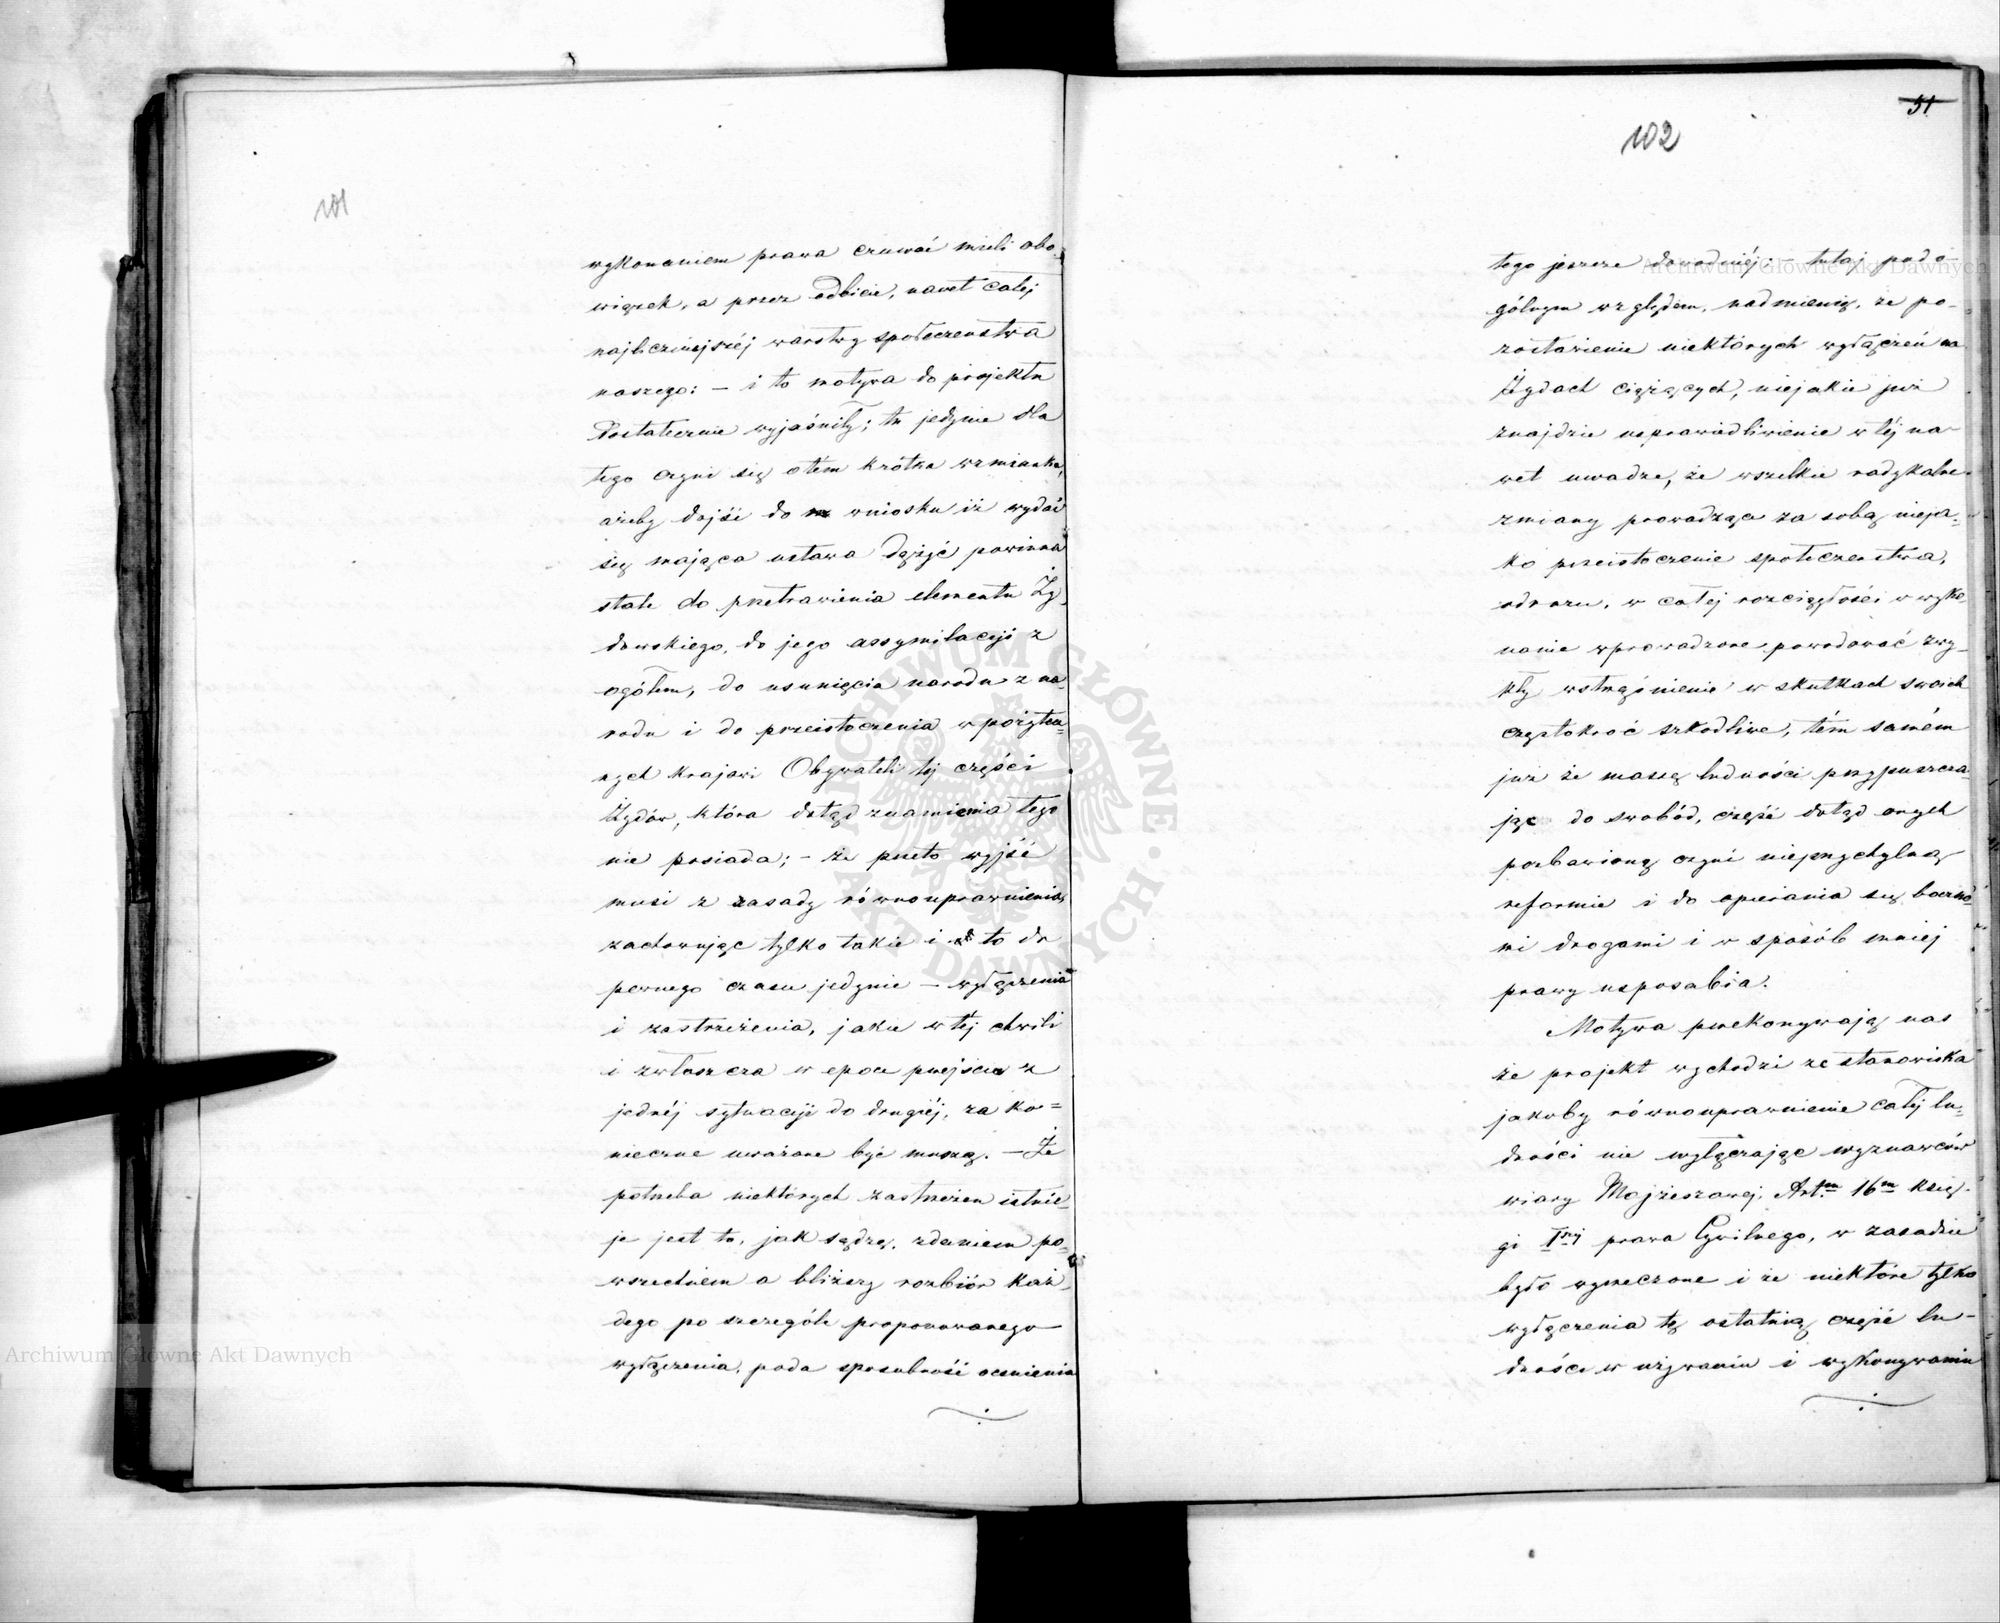 101
wykonaniem prawa czuwać mieli obo-
wiązek, a przez odbicie, nawet całej
najliczniejszéj warstwy społeczenstwa
naszego: – i to motywa do projektu
dostatecznie wyjaśniły; tu jedynie dla
tego czyni się otem krótka wzmianka,
ażeby dojść do wniosku iż wydać
się mająca ustawa dążyć powinna
stale do przetrawienia elementu Ży-
dowskiego, do jego assymilacyi z
ogółem, do usunięcia narodu z na-
rodu i do przeistoczenia w pożytecz-
nych krajowi Obywateli tej części
Żydów, która dotąd znamienia tego
nie posiada; – że przeto wyjść
musi z zasady równouprawnienia,
zachowując tylko takie i to do
pewnego czasu jedynie – wyłączenia
i zastrzeżenia, jakie w téj chwili
i zwłaszcza w epoce przejścia z
jednéj sytuacyi do drugiéj, za ko=
nieczne uważane być muszą. – Że
potrzeba niektórych zastrzeżen istnie-
je jest to, jak sądzę, zdaniem po-
wszechnem a bliższy rozbiór każ-
dego po szczególe proponowanego
wyłączenia, poda sposobność ocenienia
51
102
tego jeszcze dowodniéj: – tutaj pod o-
gólnym względem, nadmienię, że po-
zostawienie niektórych wyłączeń na
Żydach ciążących, niejakie już
znajdzie usprawiedliwienie w téj na-
wet uwadze, że wszelkie radykalne
zmiany prowadząca za sobą nieja-
ko przeistoczenie społeczenstwa,
odrazu, w całej rozciągłości w wyko-
nanie wprowadzone, powodować zwy-
kły wstrząśnienie w skutkach swoich
częstokroć szkodliwe, tém samém
już że massę ludności przypuszcza
jąc do swobód, część dotąd onych
pozbawioną czyni nieprzychylną
reformie i do opierania się boczne-
mi drogami i w sposób mniej
prawy usposabia.
Motywa przekonywają nas
że projekt wychodzi ze stanowiska
jakoby równouprawnienie całej lu-
dności nie wyłączając wyznawców
wiary Mojżeszowej, Art.m 16m Księ-
gi Iszej prawa Cywilnego, w zasadzie
było wyrzeczone i że niektóre tylko
wyłączenia tę ostatnią część lu-
dności w używaniu i wykonywaniu
Archiwum Główne Akt Dawnych
Archiwum Główne Akt Dawnych
ARCHIWUM GŁÓWNE AKT DAWNYCH